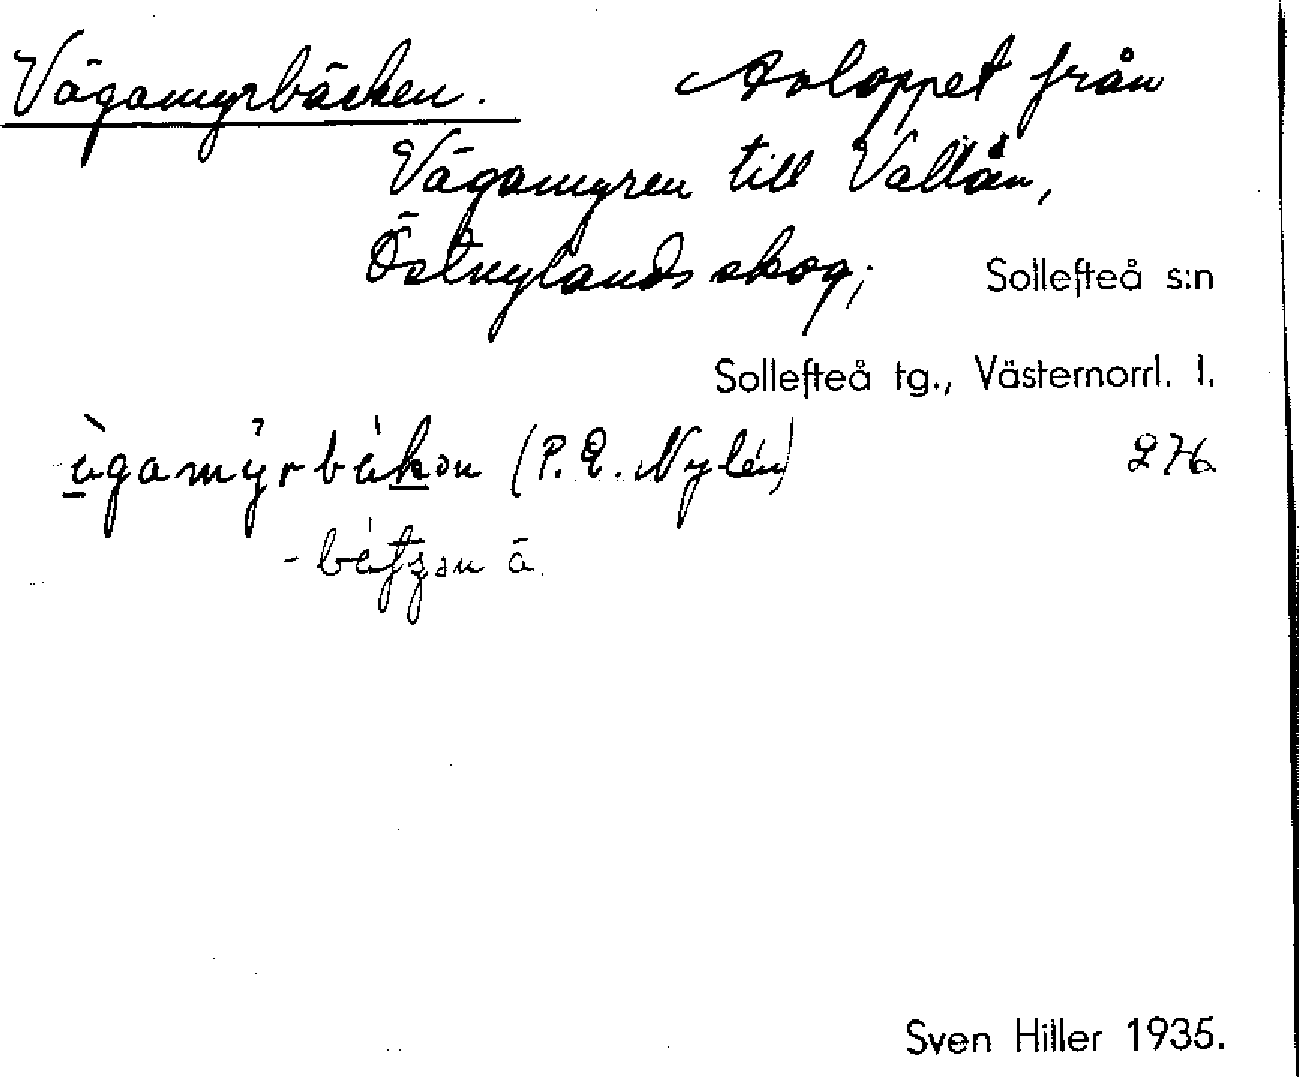 Vägamyrbäcken. Avloppet från
Vägamyren till Vallån,
Östnylands skog; Sollefteå s:n
Sollefteå tg., Västernorrl. l.
(P. E. Nylén)
Sven Hiller 1935.